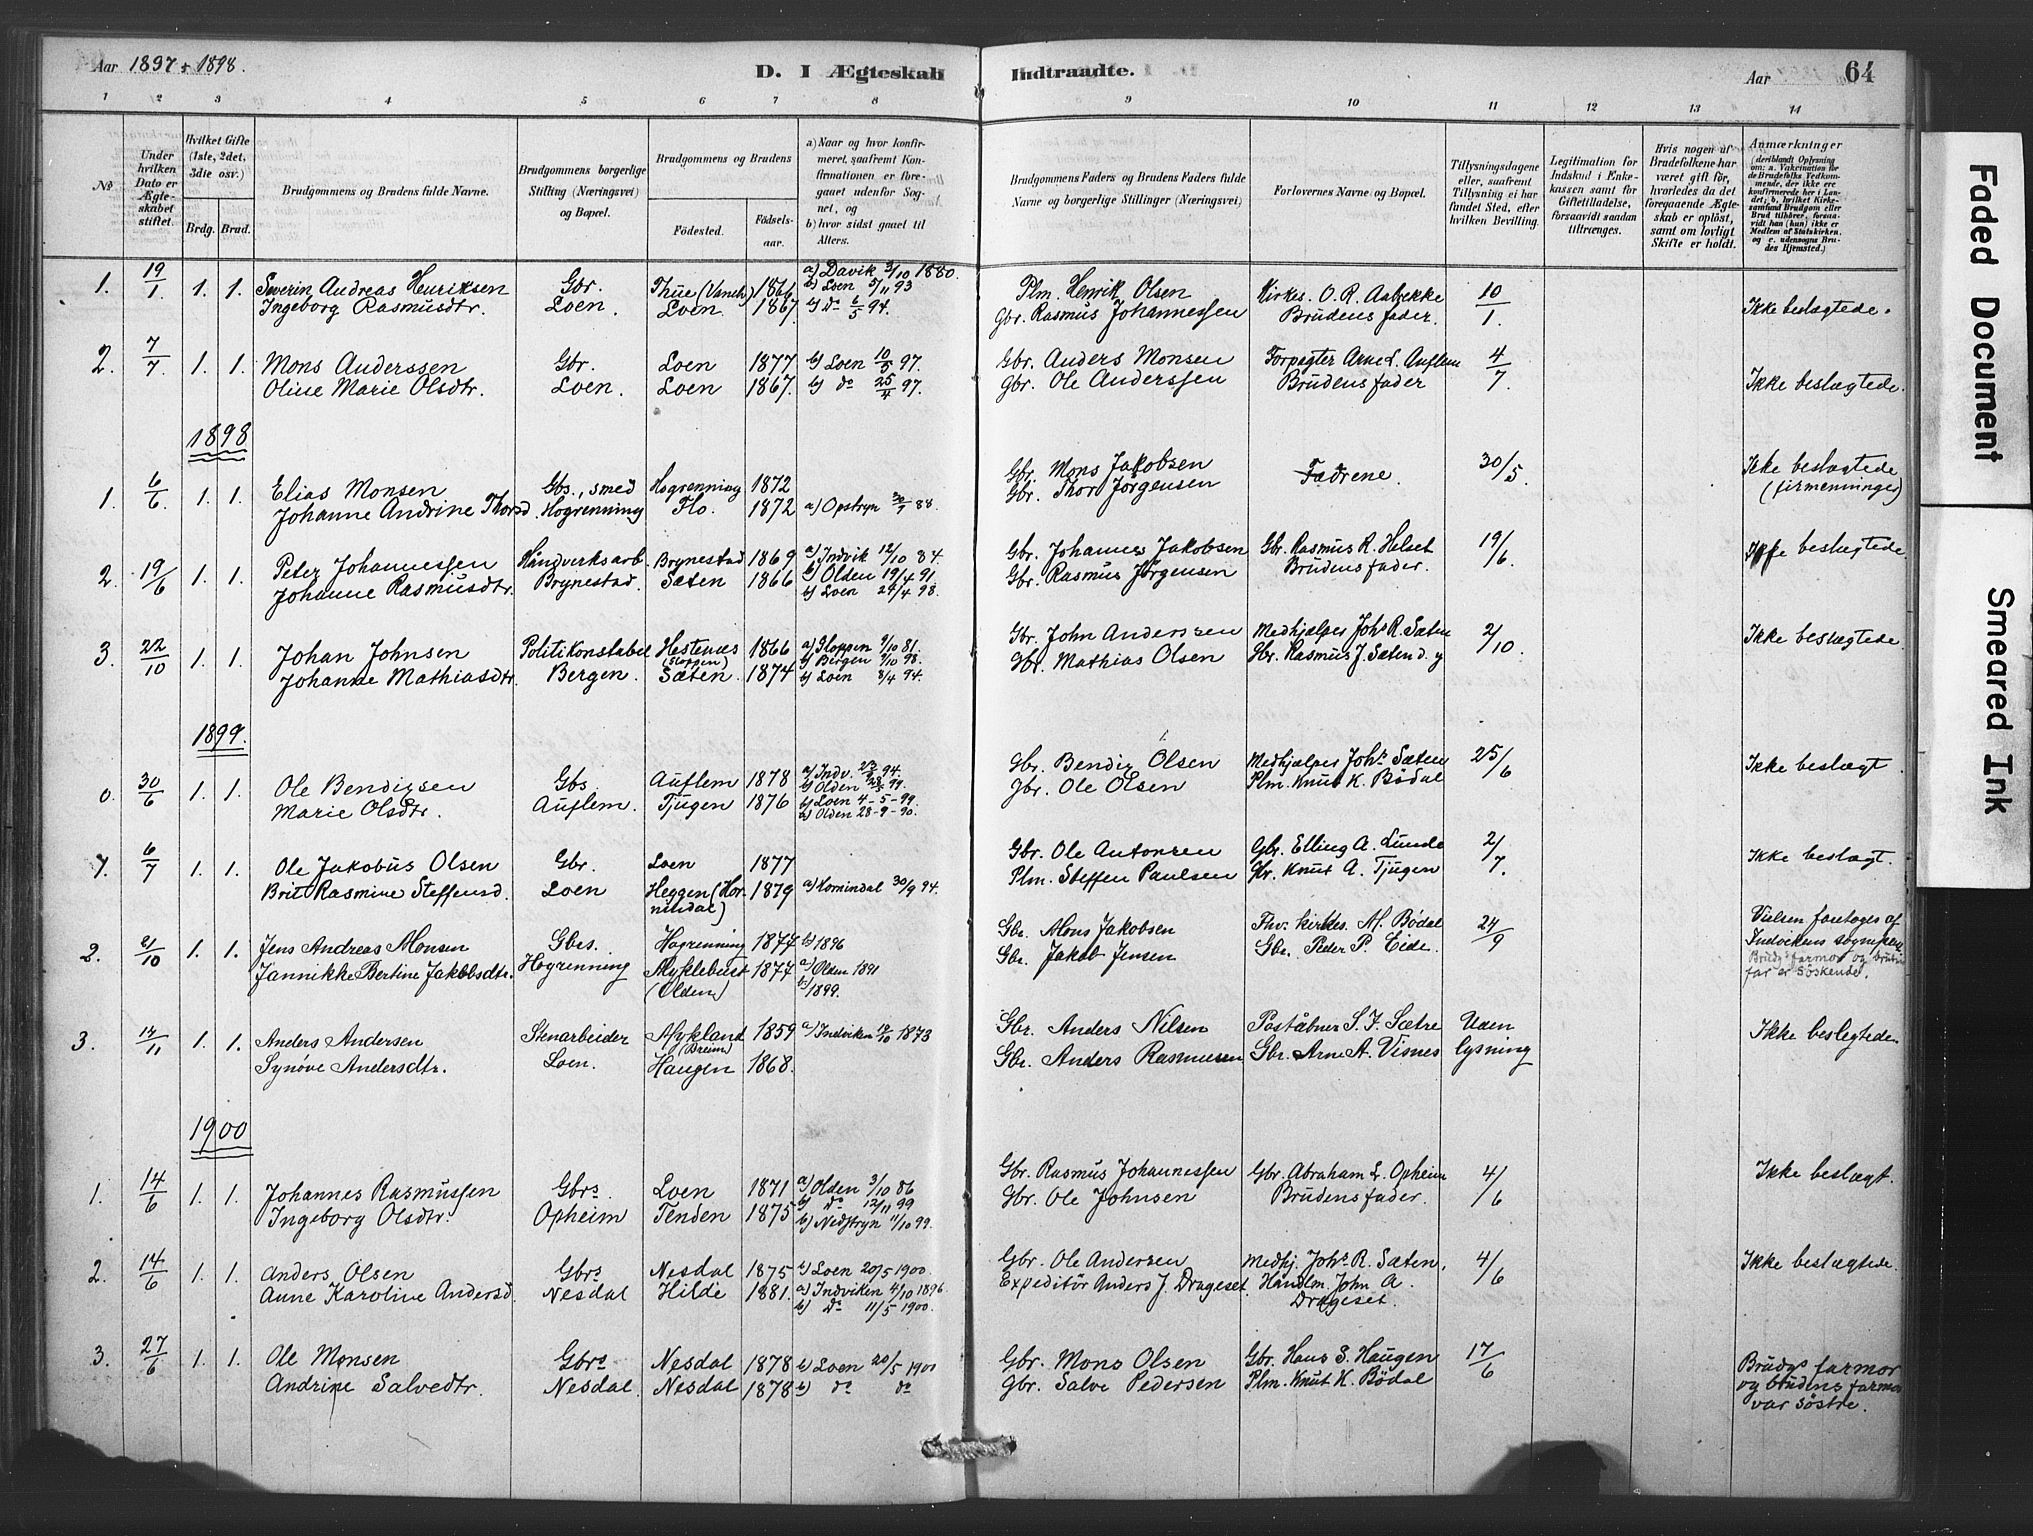 Aar 1897 + 1898.
D. I Ægteskab Indtraadte.
Aar 64
1 2 3 4 5 6 7 8 9 10 11 12 13 14
No
Under hvilken Dato er Ægteskabet stiftet.
Hvilket Gifte (1ste, 2det, 3die osv.)
Brdg. Brud.
Brudgommens og Brudens fulde Navne.
Brudgommens borgerlige Stilling (Næringsvei) og Bopæl.
Brudgommens og Brudens
Fødested. Fødselsaar.
a) Naar og hvor konfirmeret, saafremt Konfirmationen er foregaaet udenfor Sognet, og
b) hvor sidst gaaet til Alters.
Brudgommens Faders og Brudens Faders fulde Navne og borgerlige Stillinger (Næringsvei)
Forlovernes Navne og Bopæl.
Tillysningsdagene eller, saafremt Tillysning ei har fundet Sted, efter hvilken Bevilling.
Legitimation for Indskud i Enkekassen samt for Giftetilladelse, forsaavidt saadan tiltrænges.
Hvis nogen af Brudefolkene har været gift før, hvorledes da det foregaaende Ægteskab er opløst, samt om lovligt Skifte er holdt.
Anmærkninger
(deriblandt Oplysning om: a. Vakcination for de Brudefolks Vedkommende, der ikke ere konfirmerede her i Landet; b. hvilket Kirkesamfund Brudgom eller Brud tilhører, forsaavidt han (hun) ikke er Medlem af Statskirken, og c. udensogns Brudes Hjemsted.)
1. 19/1. 1. 1. Severin Andreas Henriksen Gbr. Thue (Vanelv) 1866 a) Davik 3/10 1880. b) Loen 5/11 93 Plm. Henrik Olsen Kirkes. O. R. Aabrekke 10/1. Ikke beslægtede.
Ingeborg Rasmusdtr. Loen. Loen 1867. b) do 6/5 94. Gbr. Rasmus Johannessen Brudens fader.
2. 7/7. 1. 1. Mons Anderssen Gbr. Loen 1877 b) Loen 10/5 97. Gbr. Anders Monsen Forpagter Arne L. Auflem 4/7. Ikke beslægtede.
Oline Marie Olsdtr. Loen. Loen 1867. b) do 25/4 97. Gbr. Ole Anderssen Brudens fader
1898
1. 6/6. 1. 1. Elias Monsen Gbs., smed Hogrenning 1872 Gbr. Mons Jakobsen Fædrene. 30/5. Ikke beslægtede
Johanne Andrine Thorsd. Hogrenning Flo. 1872 a) Opstryn 30/9 88. Gbr. Thor Jørgensen (firmenninger)
2. 19/6 1. 1. Peter Johannessen Håndverksarb Brynestad 1869 a) Indvik 12/10 84. b) Olden 19/4 91. Gbr. Johannes Jakobsen Gbr. Rasmus R. Helset 19/6. Ikke beslægtede
Johanne Rasmusdtr. Brynestad. Sæten 1866 b) Loen 24/4 98. Gbr. Rasmus Jørgensen Brudens fader.
3. 22/10 1. 1. Johan Johnsen Politikonstabel Hestenes (Gloppen) 1866 a) Gloppen 9/10 81. b) Bergen 9/10 98. Gbr. John Anderssen Medhjælper Johs R. Sæten 2/10. Ikke beslægtede
Johanne Mathiasdtr. Bergen. Sæten. 1874 b) Loen 8/4 94. Gbr. Mathias Olsen Gbr. Rasmus J. Sæten d. y
1899.
0. 30/6 1. 1. Ole Bendigsen Gbs Auflem 1878 a) Indv. 23/9 94. b) Olden 28/5 99. Gbr. Bendig Olsen Medhjælper Johs Sæten 25/6 Ikke beslægt.
Marie Olsdtr. Auflem. Tjugen 1876 b) Loen 4-5-99. a) Olden 28-9-90. Gbr. Ole Olsen Plm. Knut K. Bødal
1. 6/7 1. 1. Ole Jakobus Olsen Gbr. Loen 1877 Gbr. Ole Antonsen Gbr. Elling A. Lunde 2/7. Ikke beslægt.
Brit Rasmine Steffensd. Loen Heggen (Hornindal) 1879 a) Hornindal 30/9 94. Plm. Steffen Paulsen Gbr. Knut A. Tjugen
2. 21/10 1. 1. Jens Andreas Monsen Gbes. Hogrenning 1874 b) 1896 Gbr. Mons Jakobsen Fhv. kirkes. M. Bødal 24/9 Vielsen foretoges af Indvikens sognepr.
Jannikke Bertine Jakobsdtr. Hogrenning Myklebust (Olden) 1877 a) Olden 1891 b) 1899. Gbr. Jakob Jensen Gbr. Peder P. Eide. Brudg.s farmor og brudens far er søskende.
3. 14/11 1. 1. Anders Andersen Stenarbeider Mykland (Breim) 1859 a) Indviken 12/10 1873 Gbr. Anders Nilsen Poståbner S. J. Sætre Uden lysning Ikke beslegtede
Synøve Andersdtr. Loen. Haugen 1868. Gbr. Anders Rasmussen Gbr. Arne A. Visnes
1900
1. 14/6 1. 1. Johannes Rasmussen Gbrs. Loen 1871 a) Olden 3/10 86 b) do 12/11 99 Gbr. Rasmus Johannessen Gbr. Abraham L. Opheim 4/6 Ikke beslægt.
Ingeborg Olsdtr. Opheim Tenden 1875 b) Nedstryn 11/10 99. Gbr. Ole Johnsen Brudens fader.
2. 14/6 1. 1. Anders Olsen Gbrs Nesdal 1875 b) Loen 20/5 1900. Gbr. Ole Andersen Medhj. Johs R. Sæten. 4/6 Ikke beslægtede.
Anne Karoline Andersd. Nesdal Hilde 1881. a) Indviken 4/10 1896 b) do 11/5 1900. Expeditør Anders J. Drageset. Handlm. John A. Drageset.
3. 27/6 1. 1. Ole Monsen Gbrs Nesdal 1878 b) Loen 20/5 1900 Gbr. Mons Olsen Gbr. Hans S. Haugen 17/6 Brudg.s farmor
Andrine Salvedtr. Nesdal. Nesdal 1878 b) do do Gbr. Salve Pedersen Plm. Knut K. Bødal og brudens farmor var søstre.
Faded Document
Smeared Ink